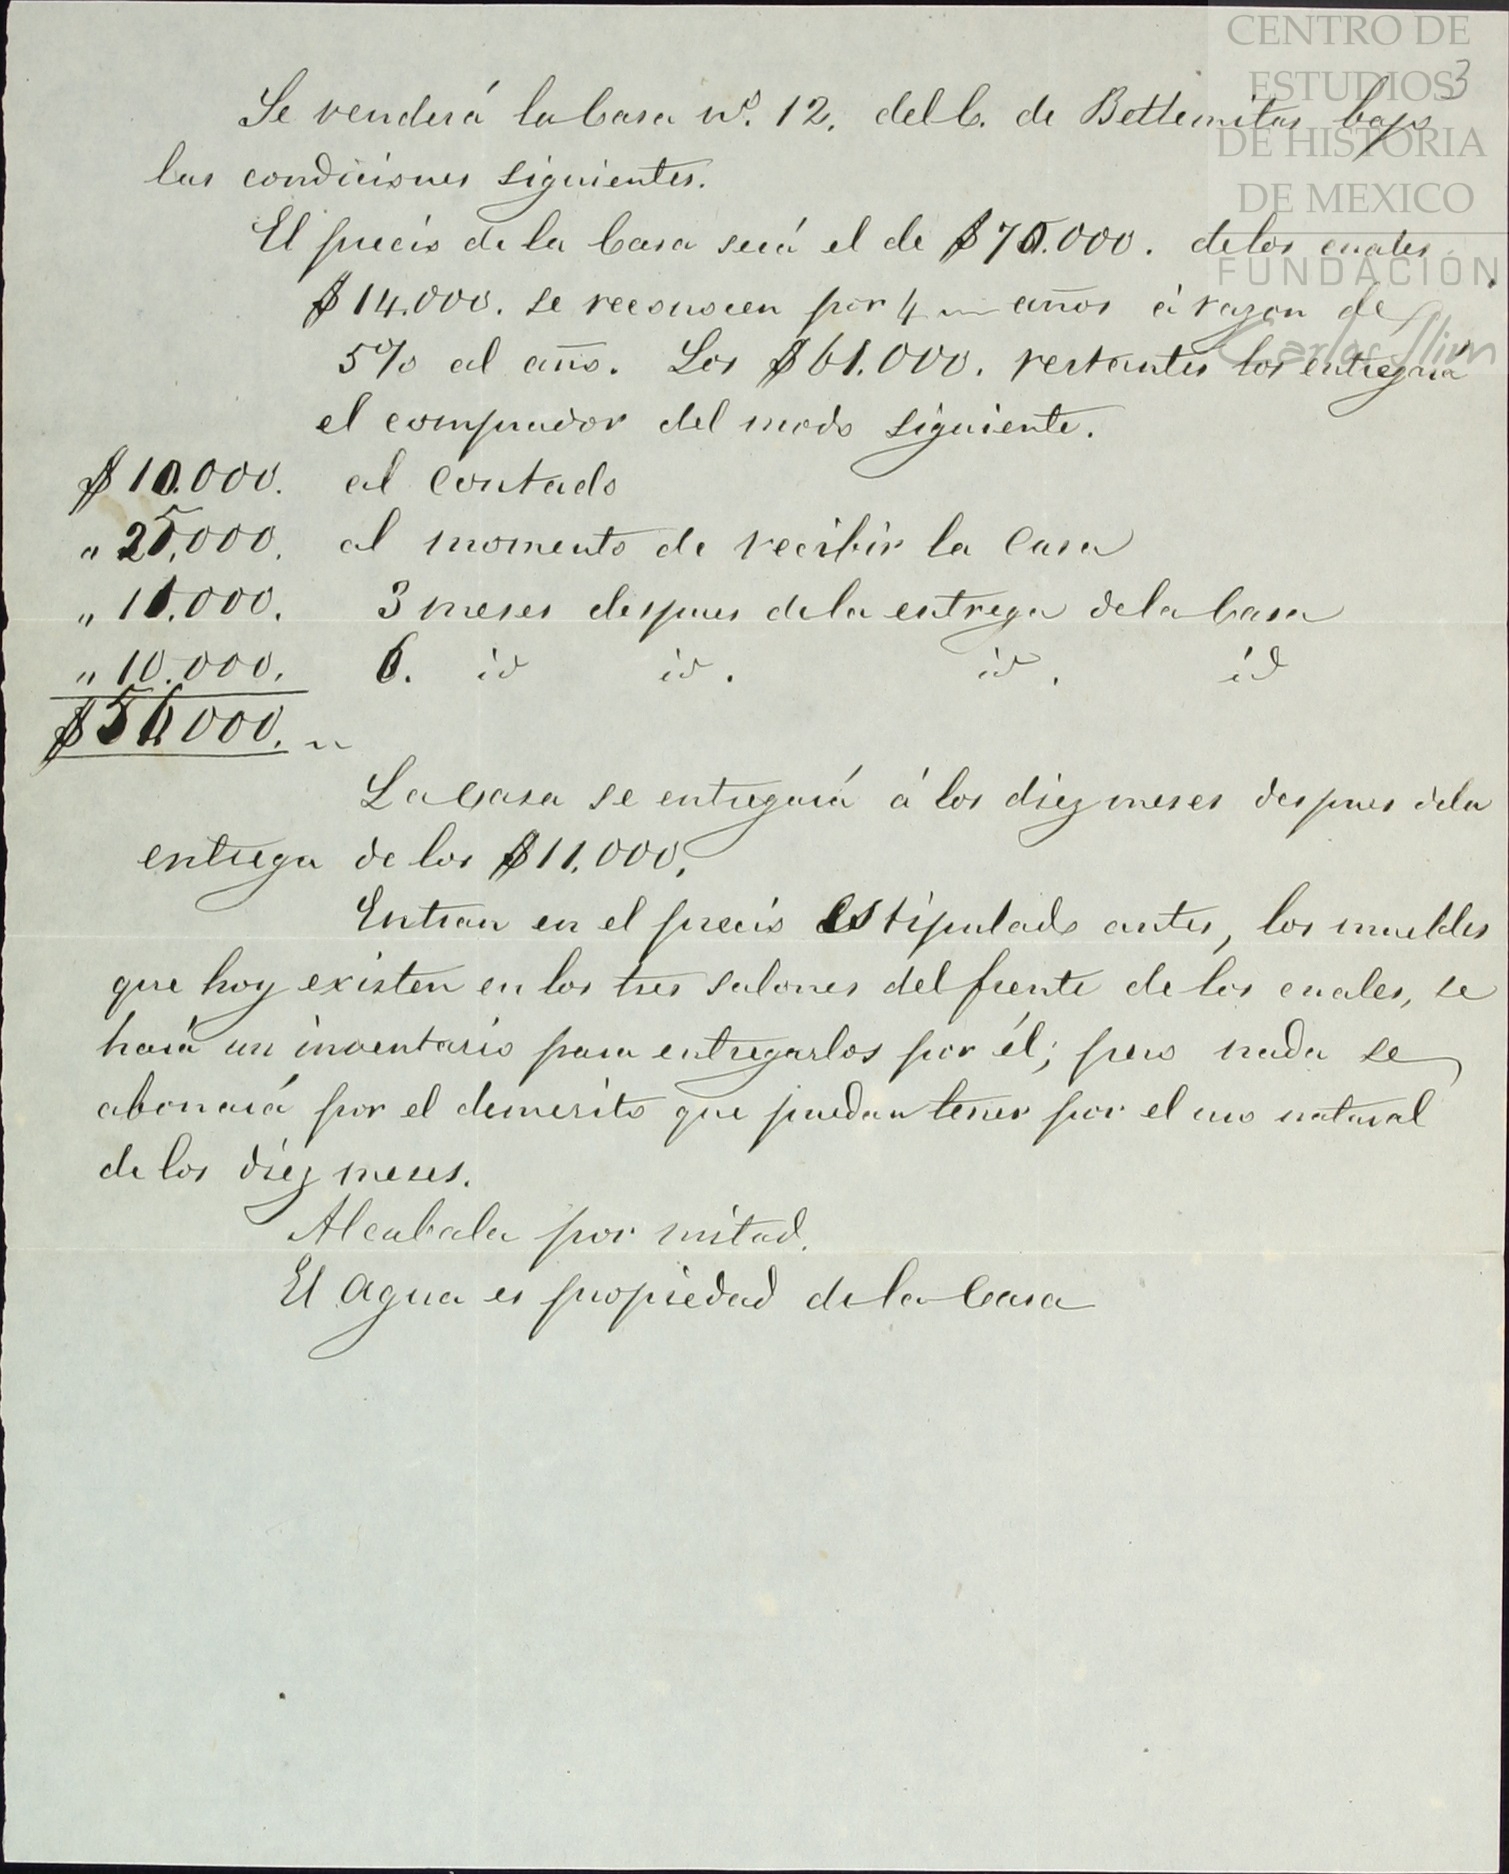 CENTRO DE
ESTUDIOS
DE HISTORIA
DE MEXICO
FUNDACIÓN
Carlos Slim
3
Se venderá la Casa nº. 12. del C. de Betlemitas bajo
las condiciones siguientes.
El precio de la Casa será el de $ 000. de los cuales
$14.000. se reconocen por 4 años á razon de
5% al año. Los $61.000. restantes los entregará
el comprador del modo siguiente.
$10.000. al contado
" 25.000. al momento de recibir la Casa
" 000. 3 meses despues de la entrega de la Casa
" 10.000. 6. id id. id. id
$ 000.
La Casa se entregará á los diez meses despues dela
entrega de los $11.000.
Entran en el precio estipulado antes, los muebles
que hoy existen en los tres salones del frente de los cuales, se
hará un inventario para entregarlos por él; pero nada se
abonará por el demerito que puedan tener por el uso natural
de los diez meses.
Alcabala por mitad.
El agua es propiedad de la Casa